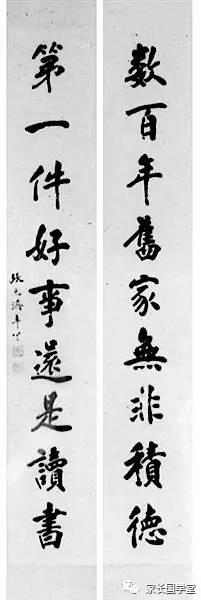 数百年舊家無非積德
第一件好事還是讀書
張元濟
家长国学堂